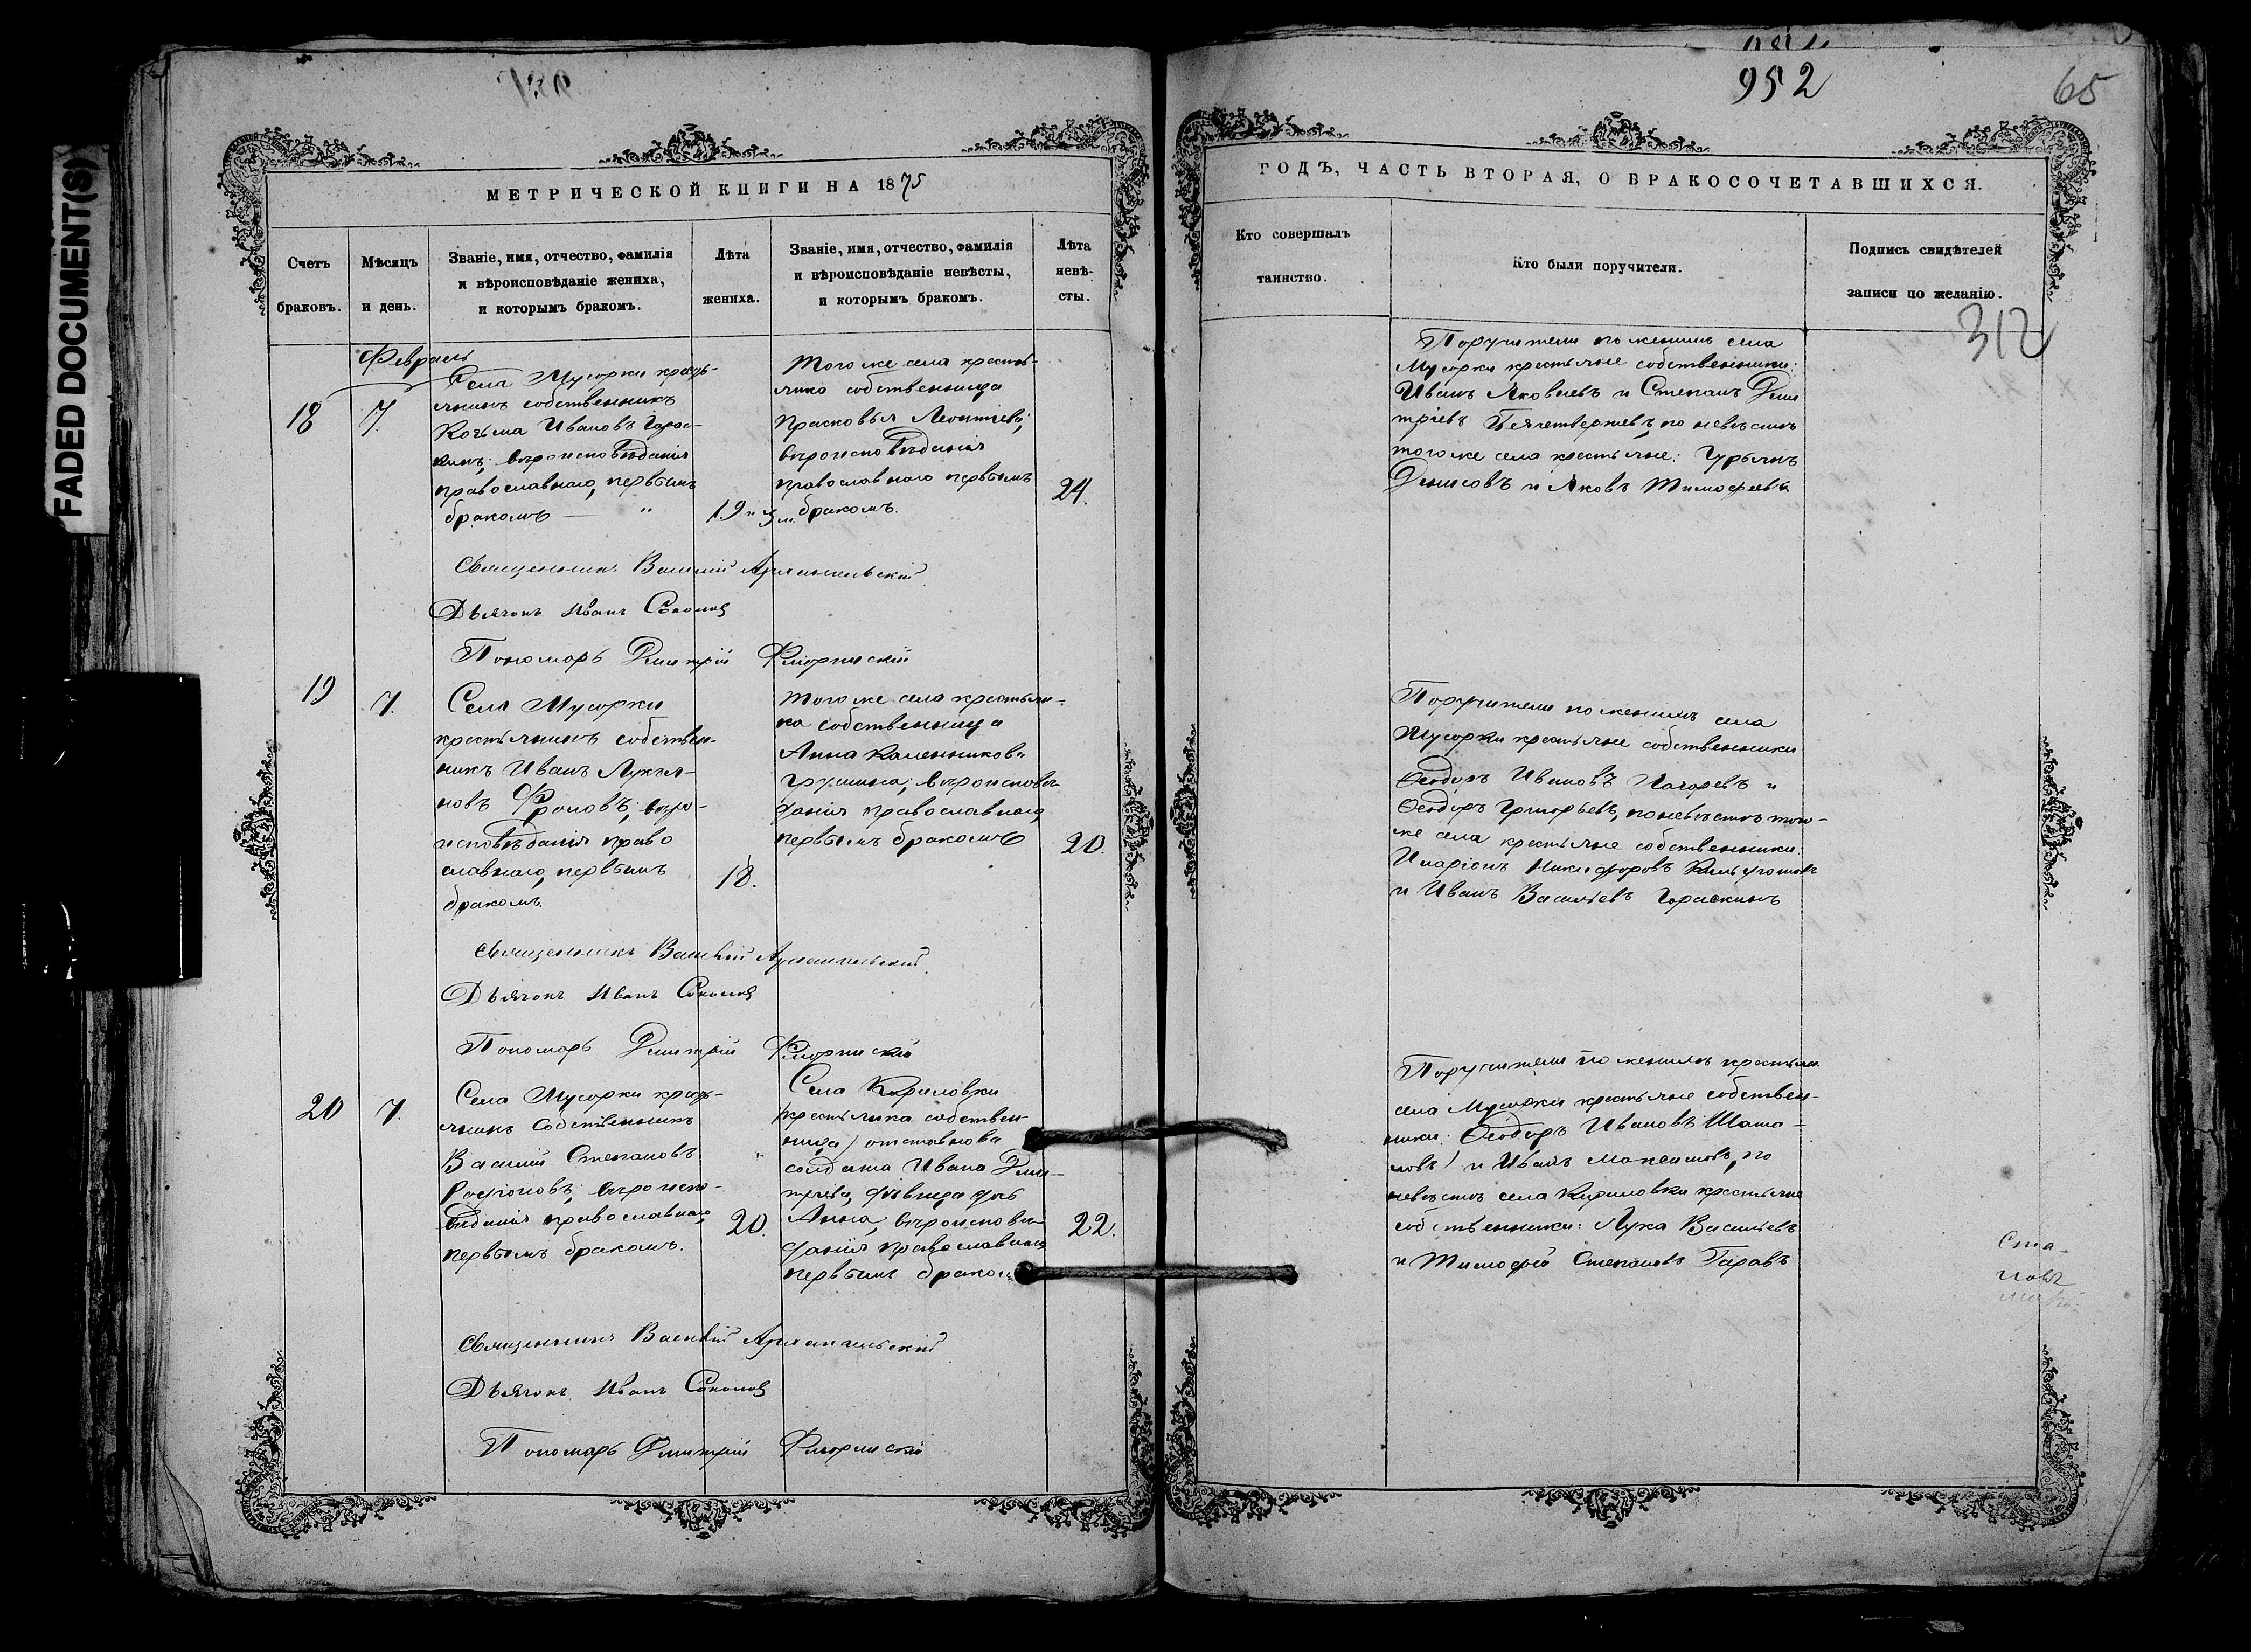 FADED DOCUMENT(S)
952
65
МЕТРИЧЕСКОЙ КНИГИ НА 1875
Счетъ браковъ.
Мѣсяцъ и день.
Званіе, имя, отчество, фамилія
и вѣроисповѣданіе жениха,
и которымъ бракомъ.
Лѣта жениха.
Званіе, имя, отчество, фамилія
и вѣроисповѣданіе невѣсты,
и которымъ бракомъ.
Лѣта невѣ-
сты.
Февраль
18
7.
Села Мусорки кресть-
янинъ собственникъ
Козьма Ивановъ Горас-
кинъ; вѣроисповѣданія
православнаго, первымъ
бракомъ — "
19 и 3 м.
Того же села кресть-
янка собственница
Прасковья Леонтіева,
вѣроисповѣданія
православнаго первымъ
бракомъ.
24.
Священникъ Василій Архангельскій
Дьячокъ Иванъ Соколов
Пономарь Дмитрій Флоринскій
19
7.
Села Мусорки
крестьянинъ собствен-
никъ Иванъ Лукья-
новъ Фроловъ; вѣро-
исповѣданія право
славнаго, первымъ
бракомъ.
18.
Того же села крестьян-
ка собственница
Анна Каленникова
Грушина; вѣроисповѣ-
данія православнаго,
первымъ бракомъ
20.
Священникъ Василій Архангельскій
Дьячокъ Иванъ Соколов
Пономарь Дмитрій Флоринскій
20
7.
Села Мусорки кресть-
янинъ собственникъ
Василій Степановъ
Родіоновъ; вѣроиспо-
вѣданія православнаго,
первымъ бракомъ.
20.
Села Кириловки
крестьянка собствен-
ница) отставнова
солдата Ивана Дми-
тріева, дѣвица дочь
Анна, вѣроисповѣ-
данія православнаго
первымъ бракомъ
22.
Священникъ Василій Архангельскій
Дьячокъ Иванъ Соколов
Пономарь Дмитрій Флоринскій
ГОДЪ, ЧАСТЬ ВТОРАЯ, О БРАКОСОЧЕТАВШИХСЯ.
Кто совершалъ
таинство.
Кто были поручители.
Подпись свидѣтелей
записи по желанію.
312
Поручители по женихѣ села
Мусорки крестьяне собственники:
Иванъ Яковлевъ и Степанъ Дми
тріевъ Безчетвертевъ, по невѣстѣ
того же села крестьяне: Гурьянъ
Денисовъ и Яковъ Тимофеевъ
Поручители по женихѣ села
Мусорки крестьяне собственники
Ѳеодоръ Ивановъ и
Ѳеодоръ Григорьевъ, по невѣстѣ того-
же села крестьяне собственники:
Иларіонъ Никифоровъ
и Иванъ Васильевъ Гораскинъ
Поручители по женихѣ крестьян
села Мусорки крестьяне собствен-
ники: Ѳеодоръ Ивановъ Шата-
ловъ) и Иванъ Максимовъ, по
невѣстѣ села Кириловки крестьяне
собственники: Лука Васильевъ
и Тимофей Степановъ
Ста-
новъ